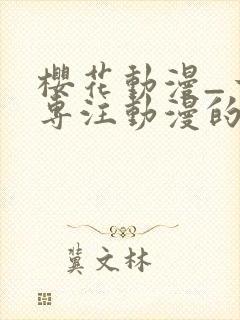 櫻花動漫_
專注動漫的
冀文林